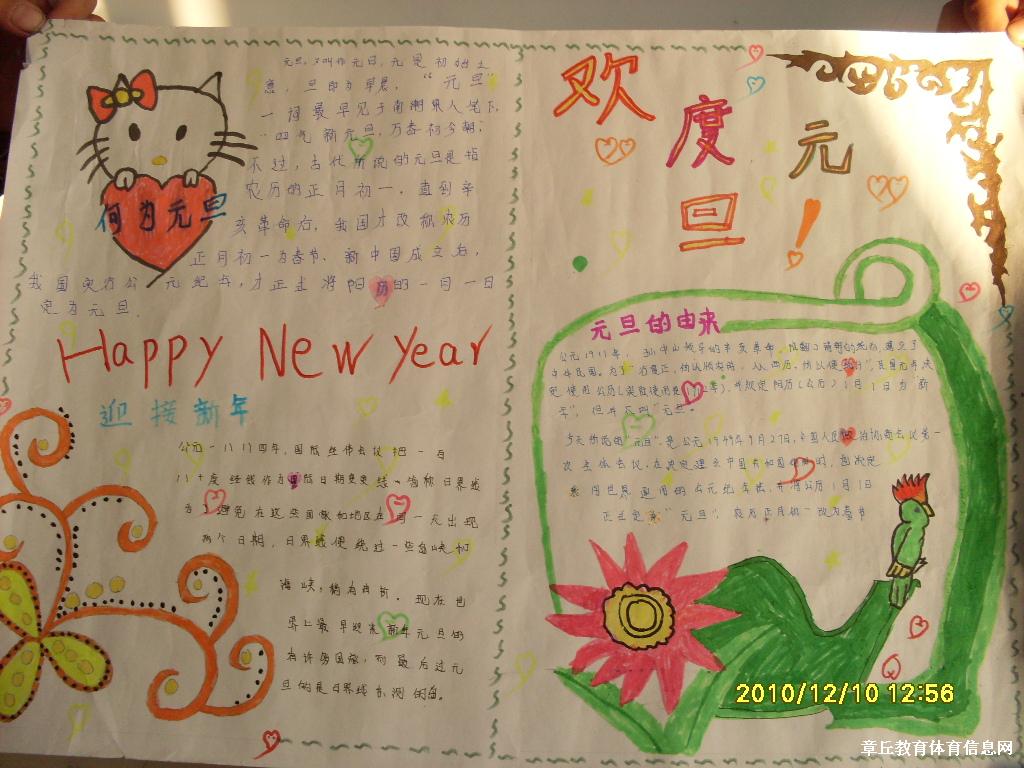 何为元旦
元旦,又叫作元日,元是初始之
意,旦即为早晨,“元旦”
一词最早见于南朝 人 笔下,
四气新元旦,万春初今朝;
不过,古代所说的元旦是指
农历的正月初一,直到辛
亥革命后,我国才改称农历
正月初一为春节、新中国成立后,
我国实行公元纪年,才正式将阳历的一月一日
定为元旦.
Happy New Year
迎接新年
公元一八八四年,国际经 会议把一百
八十度经线作为国际日期变更线,俗称日界线
为了避免在这些国家和地区在同一天出现
两个日期,日界线便绕过一些 峡和
海峡,稍为有折。现在世
界上最早迎来新年元旦的
有许多国家,而最后过元
旦的是日界线东测的
欢度元旦!
元旦的由来
公元1911年,孙中山领导的辛亥革命,推翻了 的统治,建立了
中华民国。为了“行夏正,所以顺农时,从西历,所以便统计”,民国元年决
定使用公历(实际使用是1912年),并规定阳历(公历)1月1日为“新
年”,但并不叫“元旦”。
今天所说的“元旦”是公元1949年9月27日,中国人民政治协商会议第一
次全体会议,在决定建立中国 共和国 的同时,也决定
采用世界通用的公元纪年法,并将公历1月1日
正式定为“元旦”,农历正月初一改为春节
2010/12/10 12:56
章丘教育体育信息网